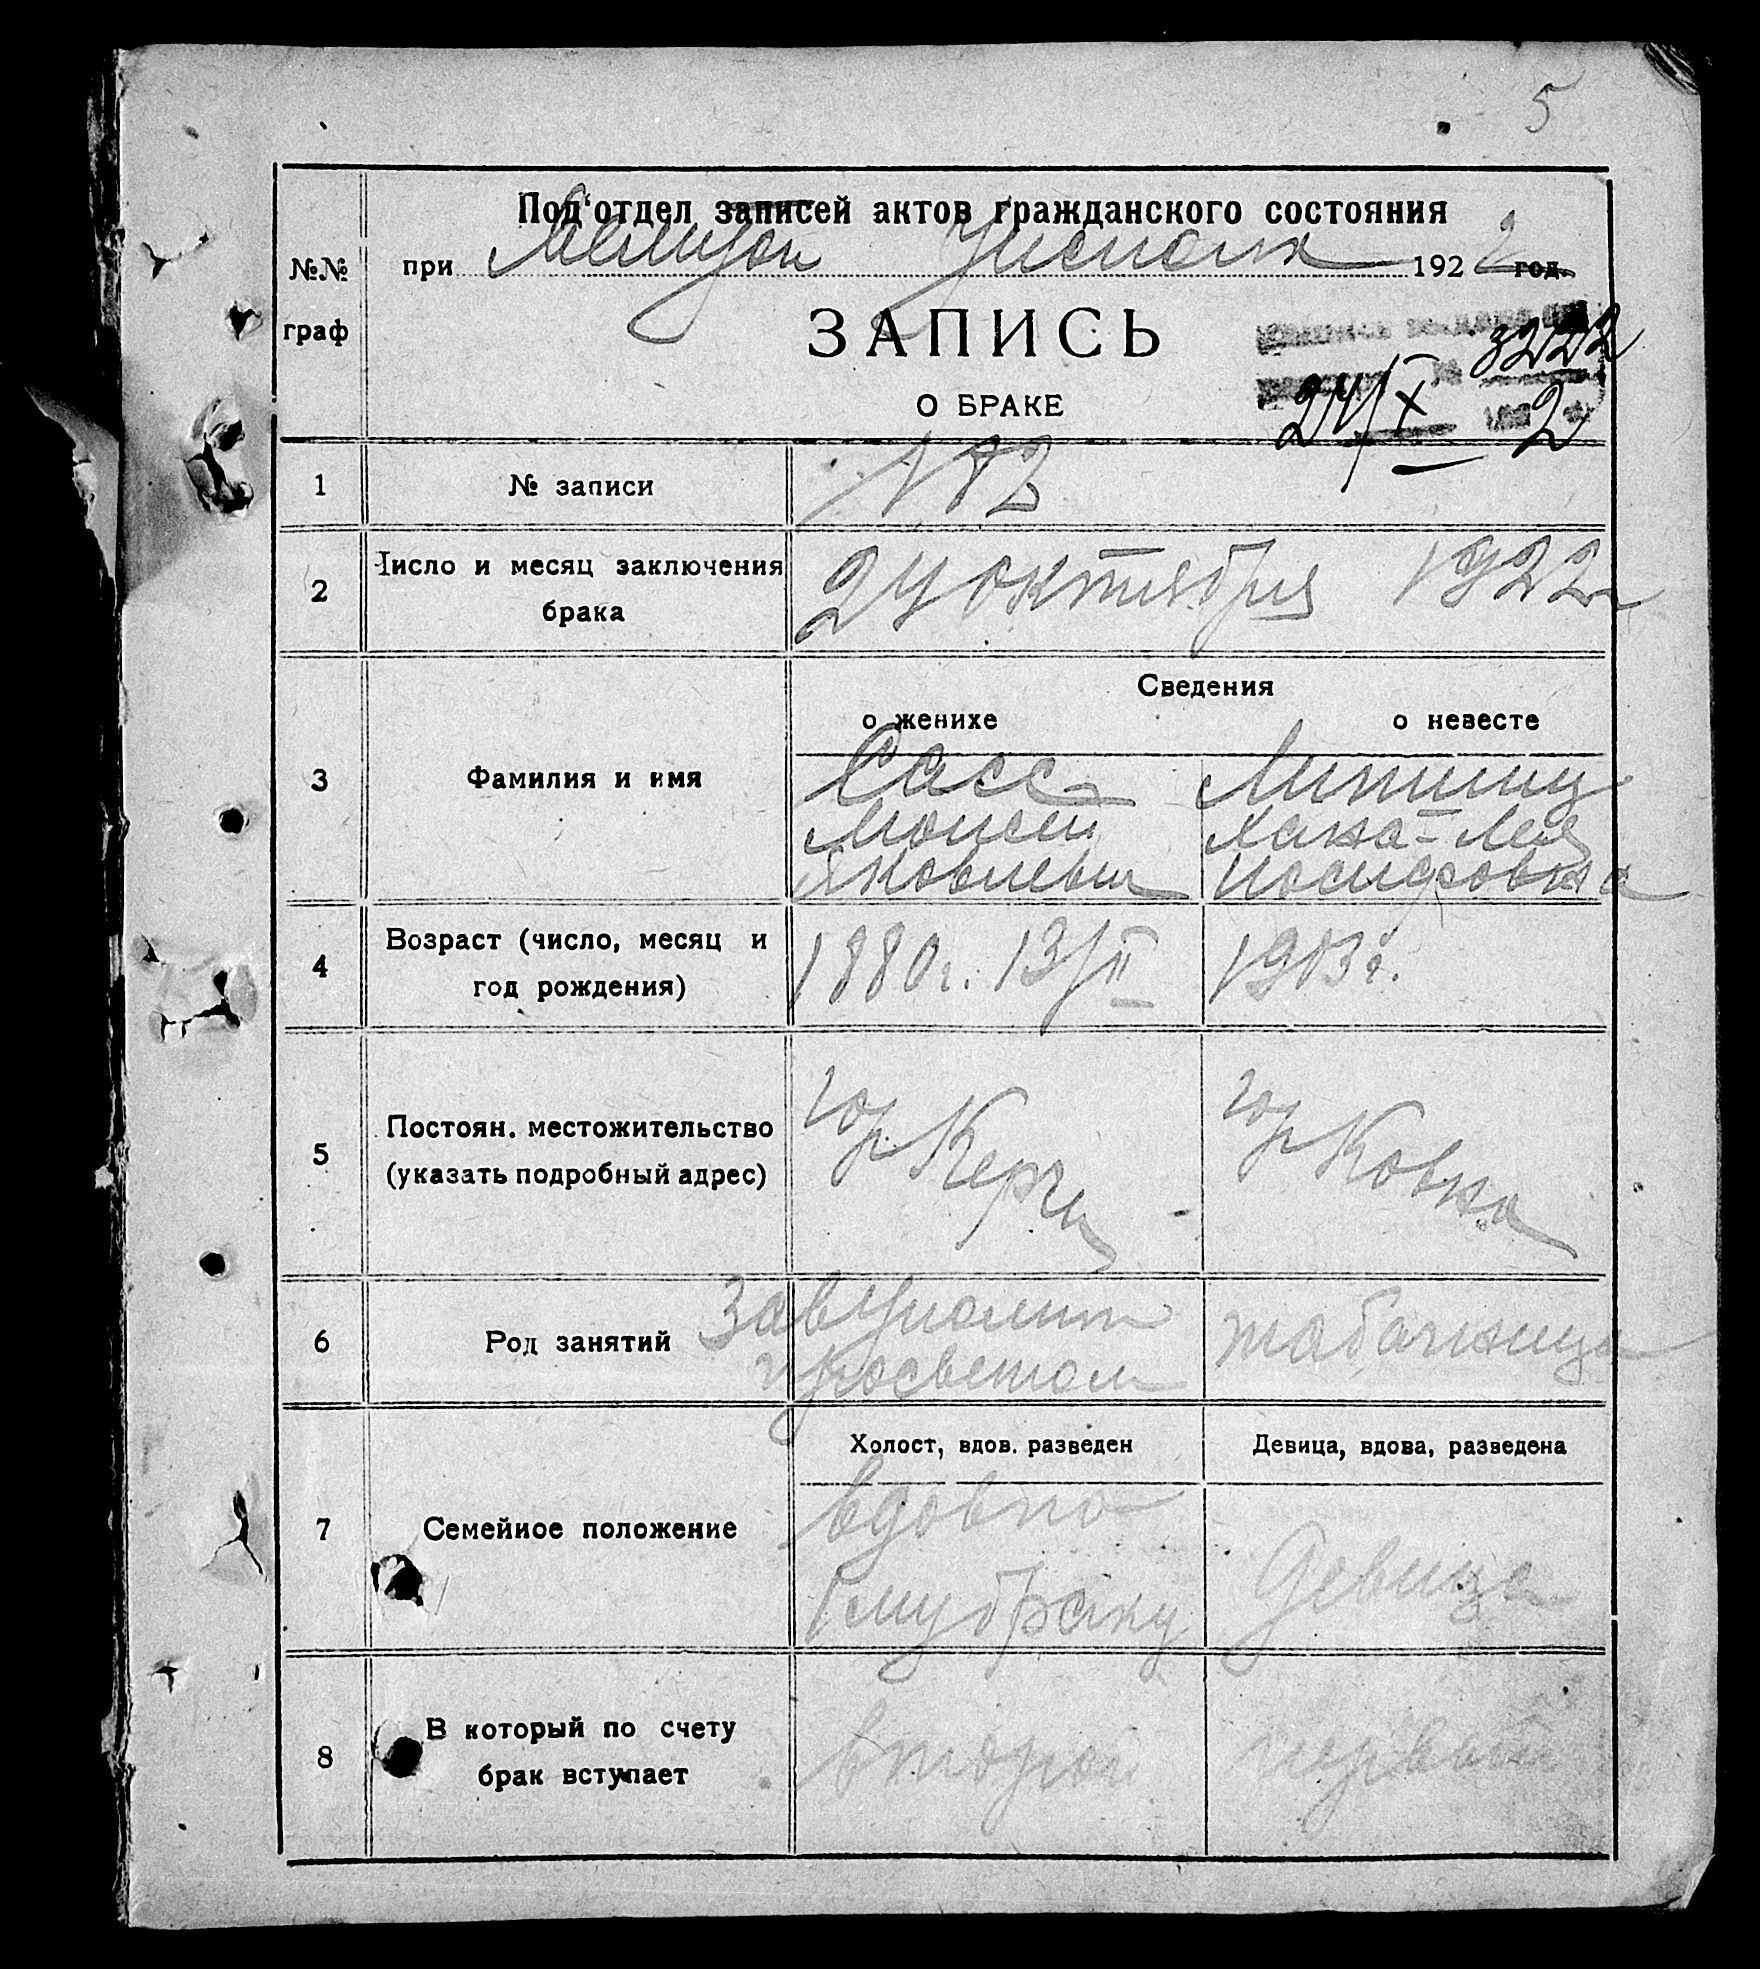 5
Под'отдел записей актов гражданского состояния
№№ граф
при Мелитоп Уисполк 1922 год.
ЗАПИСЬ
О БРАКЕ
3222
24/X 2
1 № записи 182
2 Число и месяц заключения
брака
24 октября 1922
Сведения
о женихе о невесте
3 Фамилия и имя
Сасс Липшиц
Моисей Хана-Лея
Яковлевич Иосифовна
4 Возраст (число, месяц и
год рождения)
1880г. 13/II 1903г.
5 Постоян. местожительство
(указать подробный адрес)
гор Керчь гор Ковна
6 Род занятий
Завуполит
просветом
табачница
Холост, вдов. разведен Девица, вдова, разведена
7 Семейное положение
вдов по
1му браку
девица
8 В который по счету
брак вступает
второй первый